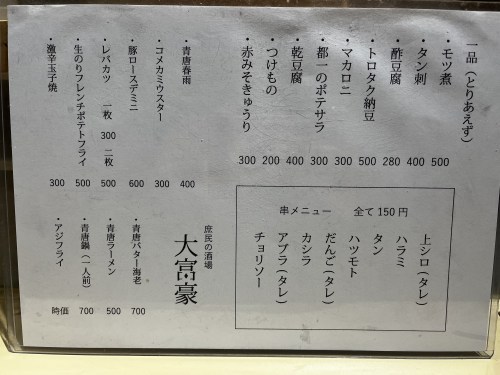 一品（とりあえず）
・モツ煮 500
・タン刺 400
・酢豆腐 280
・トロタク納豆 500
・マカロニ 300
・都一のポテサラ 300
・乾豆腐 400
・つけもの 200
・赤みそきゅうり 300
・青唐春雨 400
・コメカミウスター 300
・豚ロースデミニ 600
・レバカツ 一枚 300 二枚 500
・生のりフレンチポテトフライ 500
・激辛玉子焼 300
串メニュー 全て 150 円
上シロ（タレ）
ハラミ
タン
ハツモト
だんご（タレ）
カシラ
アブラ（タレ）
チョリソー
庶民の酒場
大富豪
・青唐バター海老 700
・青唐ラーメン 500
・青唐鍋（一人前） 700
・アジフライ 時価